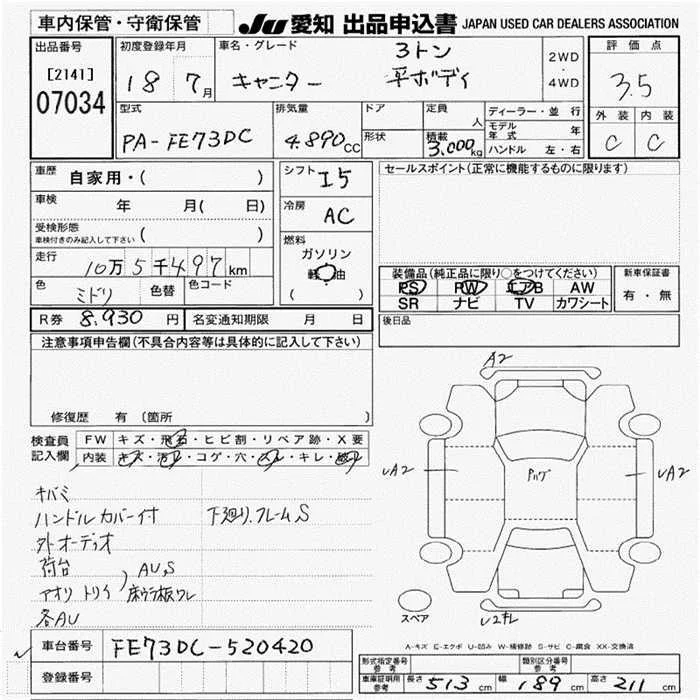 車内保管・守衛保管
JU 愛知 出品申込書 JAPAN USED CAR DEALERS ASSOCIATION
出品番号
[2141]
07034
初度登録年月
18 7月
車名・グレード
3トン
キャンター 平ボディ
2WD
・
4WD
評価点
3.5
外装 内装
C C
型式
PA-FE73DC
排気量
4.890cc
ドア
形状
定員
人
積載
3,000kg
ディーラー・並行
モデル年式 年
ハンドル 左・右
車歴 自家用・( )
車検 年 月( 日)
受検形態
車検付きのみ記入して下さい ( )
走行 10万5千497km
色 ミドリ 色替 色コード
R券 8,930円 名変通知期限 月 日
シフト I5
冷房 AC
燃料
ガソリン
軽油
( )
セールスポイント(正常に機能するものに限ります)
装備品(純正品に限り○をつけてください)
PS PW エアB AW
SR ナビ TV カワシート
新車保証書
有・無
後日品
注意事項申告欄(不具合内容等は具体的に記入して下さい)
修復歴 有 (箇所 )
検査員記入欄
FW キズ・飛石・ヒビ割・リペア跡・X要
内装 キズ・汚レ・コゲ・穴・スレ・キレ・破レ
キバミ
ハンドルカバー付 下廻り.フレームS
外オーディオ
荷台 AU,S
アオリ トリイ 床ウラ板ワレ
各AU
A2
UA2
UA2
U2キレ
スペア
A-キズ E-エクボ U-凹み W-補修跡 S-サビ C-腐食 XX-交換済
車台番号 FE73DC-520420
登録番号
形式指定番号 参考
類別区分番号 参考
車庫証明用 参考 長さ 513cm 幅 189cm 高さ 211cm